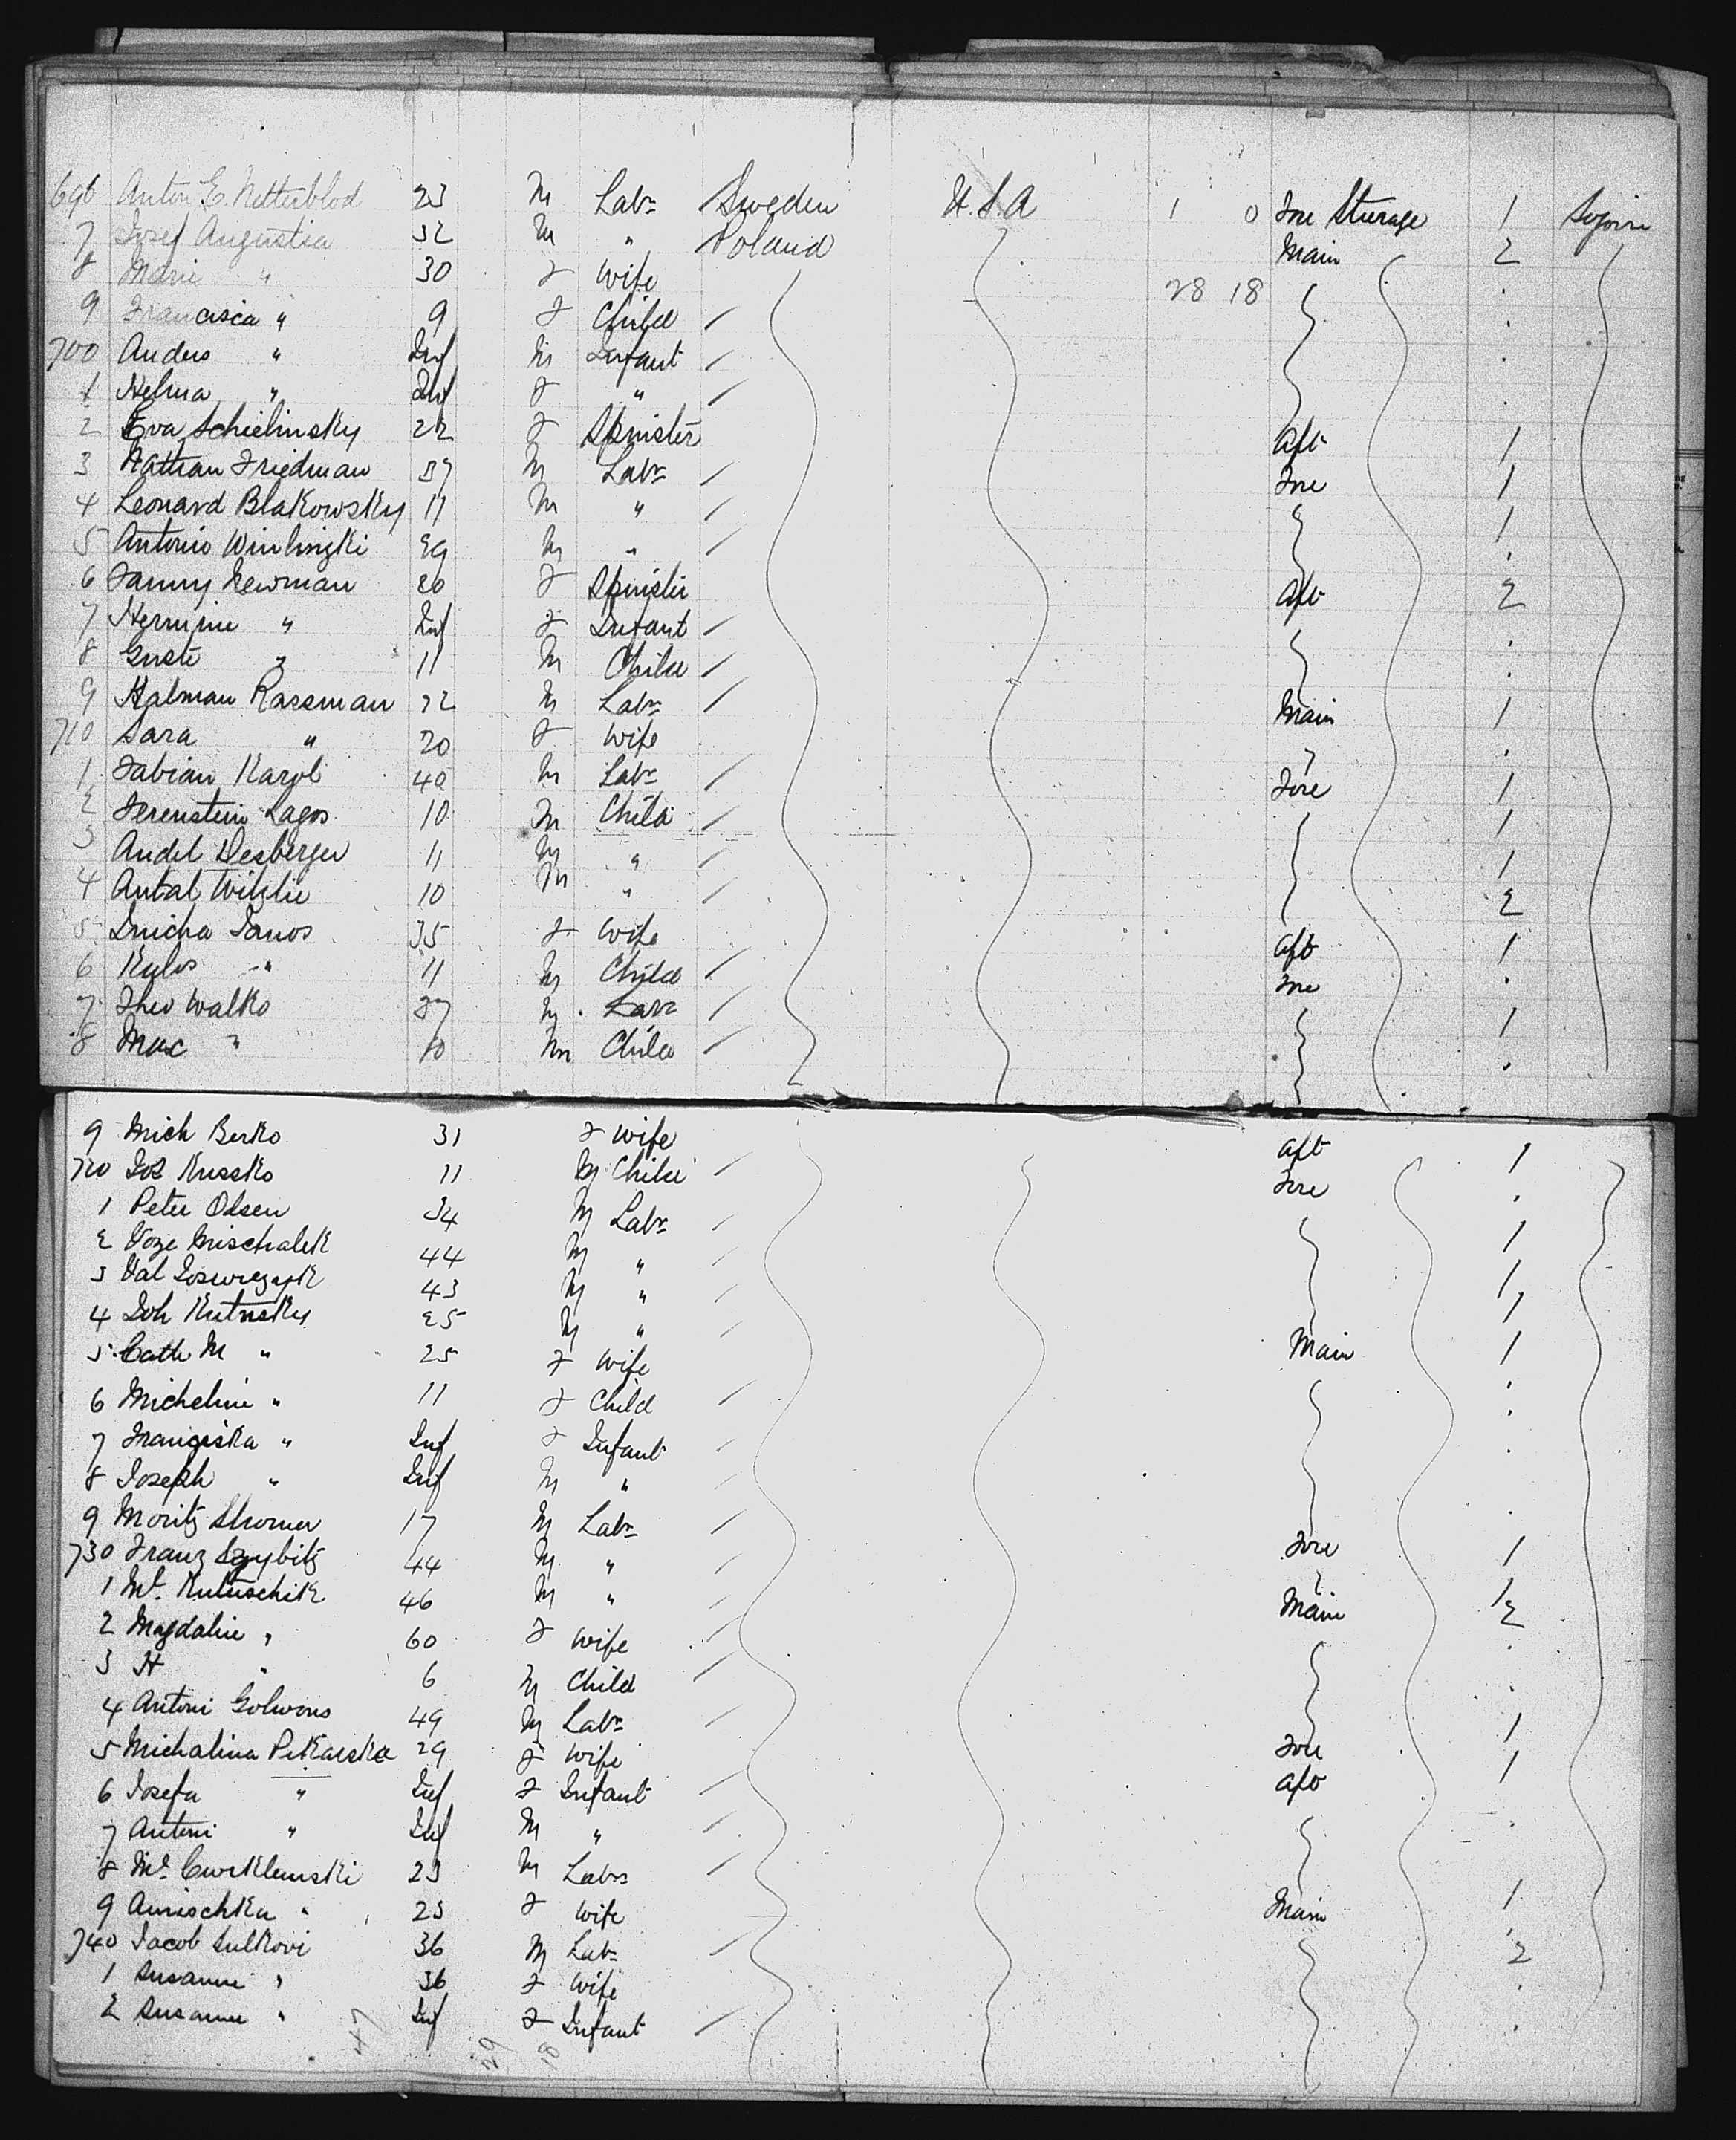 696 Anton E. Netterblod 23 M Labr Sweden U.S.A 1 0 Fore Sterage 1 Sojourn
7 Josef Augustia 32 M " Poland Main 2
8 Marie " 30 F Wife 28 18
9 Francisca " 9 F Child
700 Anders " Inf M Infant
1 Helma " Inf F "
2 Eva Schielinsky 22 F Spinster Aft 1
3 Nathan Friedman 37 M Labr Fore 1
4 Leonard Blakowsky 11 M " 1
5 Antonio 29 M "
6 Fanny Newman 20 F Spinster Aft 2
7 Hermine " Inf F Infant
8 Guste " 11 M Child
9 Kalman Rassman 22 M Labr Main 1
710 Sara " 20 F Wife
1 Fabian Karol 40 M Labr Fore 1
2 Ferenstein Lagos 10 M Child 1
3 Andel Desberger 11 M " 1
4 Antal 10 M " 2
5 Janos 35 F Wife Aft 1
6 " 11 M Child Fore
7 Theo Walko 27 M Labr 1
8 Max " 10 M Child
9 Mich Berko 31 F Wife Aft 1
720 Jos Kussko 11 M Child Fore
1 Peter Olsen 34 M Labr 1
2 Woze Mischalek 44 M " 1
3 Val 43 M " 1
4 Joh Kutnsky 25 M " Main 1
5 Cath M " 25 F Wife
6 Micheline " 11 F Child
7 Franziska " Inf F Infant
8 Joseph " Inf M "
9 Moritz Stromer 17 M Labr Fore 1
730 Franz Szybitz 44 M " 1
1 Mt. Kutuschik 46 M " Main 2
2 Magdaline " 60 F Wife
3 H " 6 M Child
4 Antoni Golwons 49 M Labr Fore 1
5 Michalina Pekarska 29 F Wife Aft 1
6 Josefa " Inf F Infant
7 Antoni " Inf M "
8 Mt. Cwiklemski 23 M Labr Main 1
9 Annischka " 23 F Wife
740 Jacob Sulkovi 36 M Labr 2
1 Susanne " 36 F Wife
2 Susanne " Inf F Infant
47 29 18